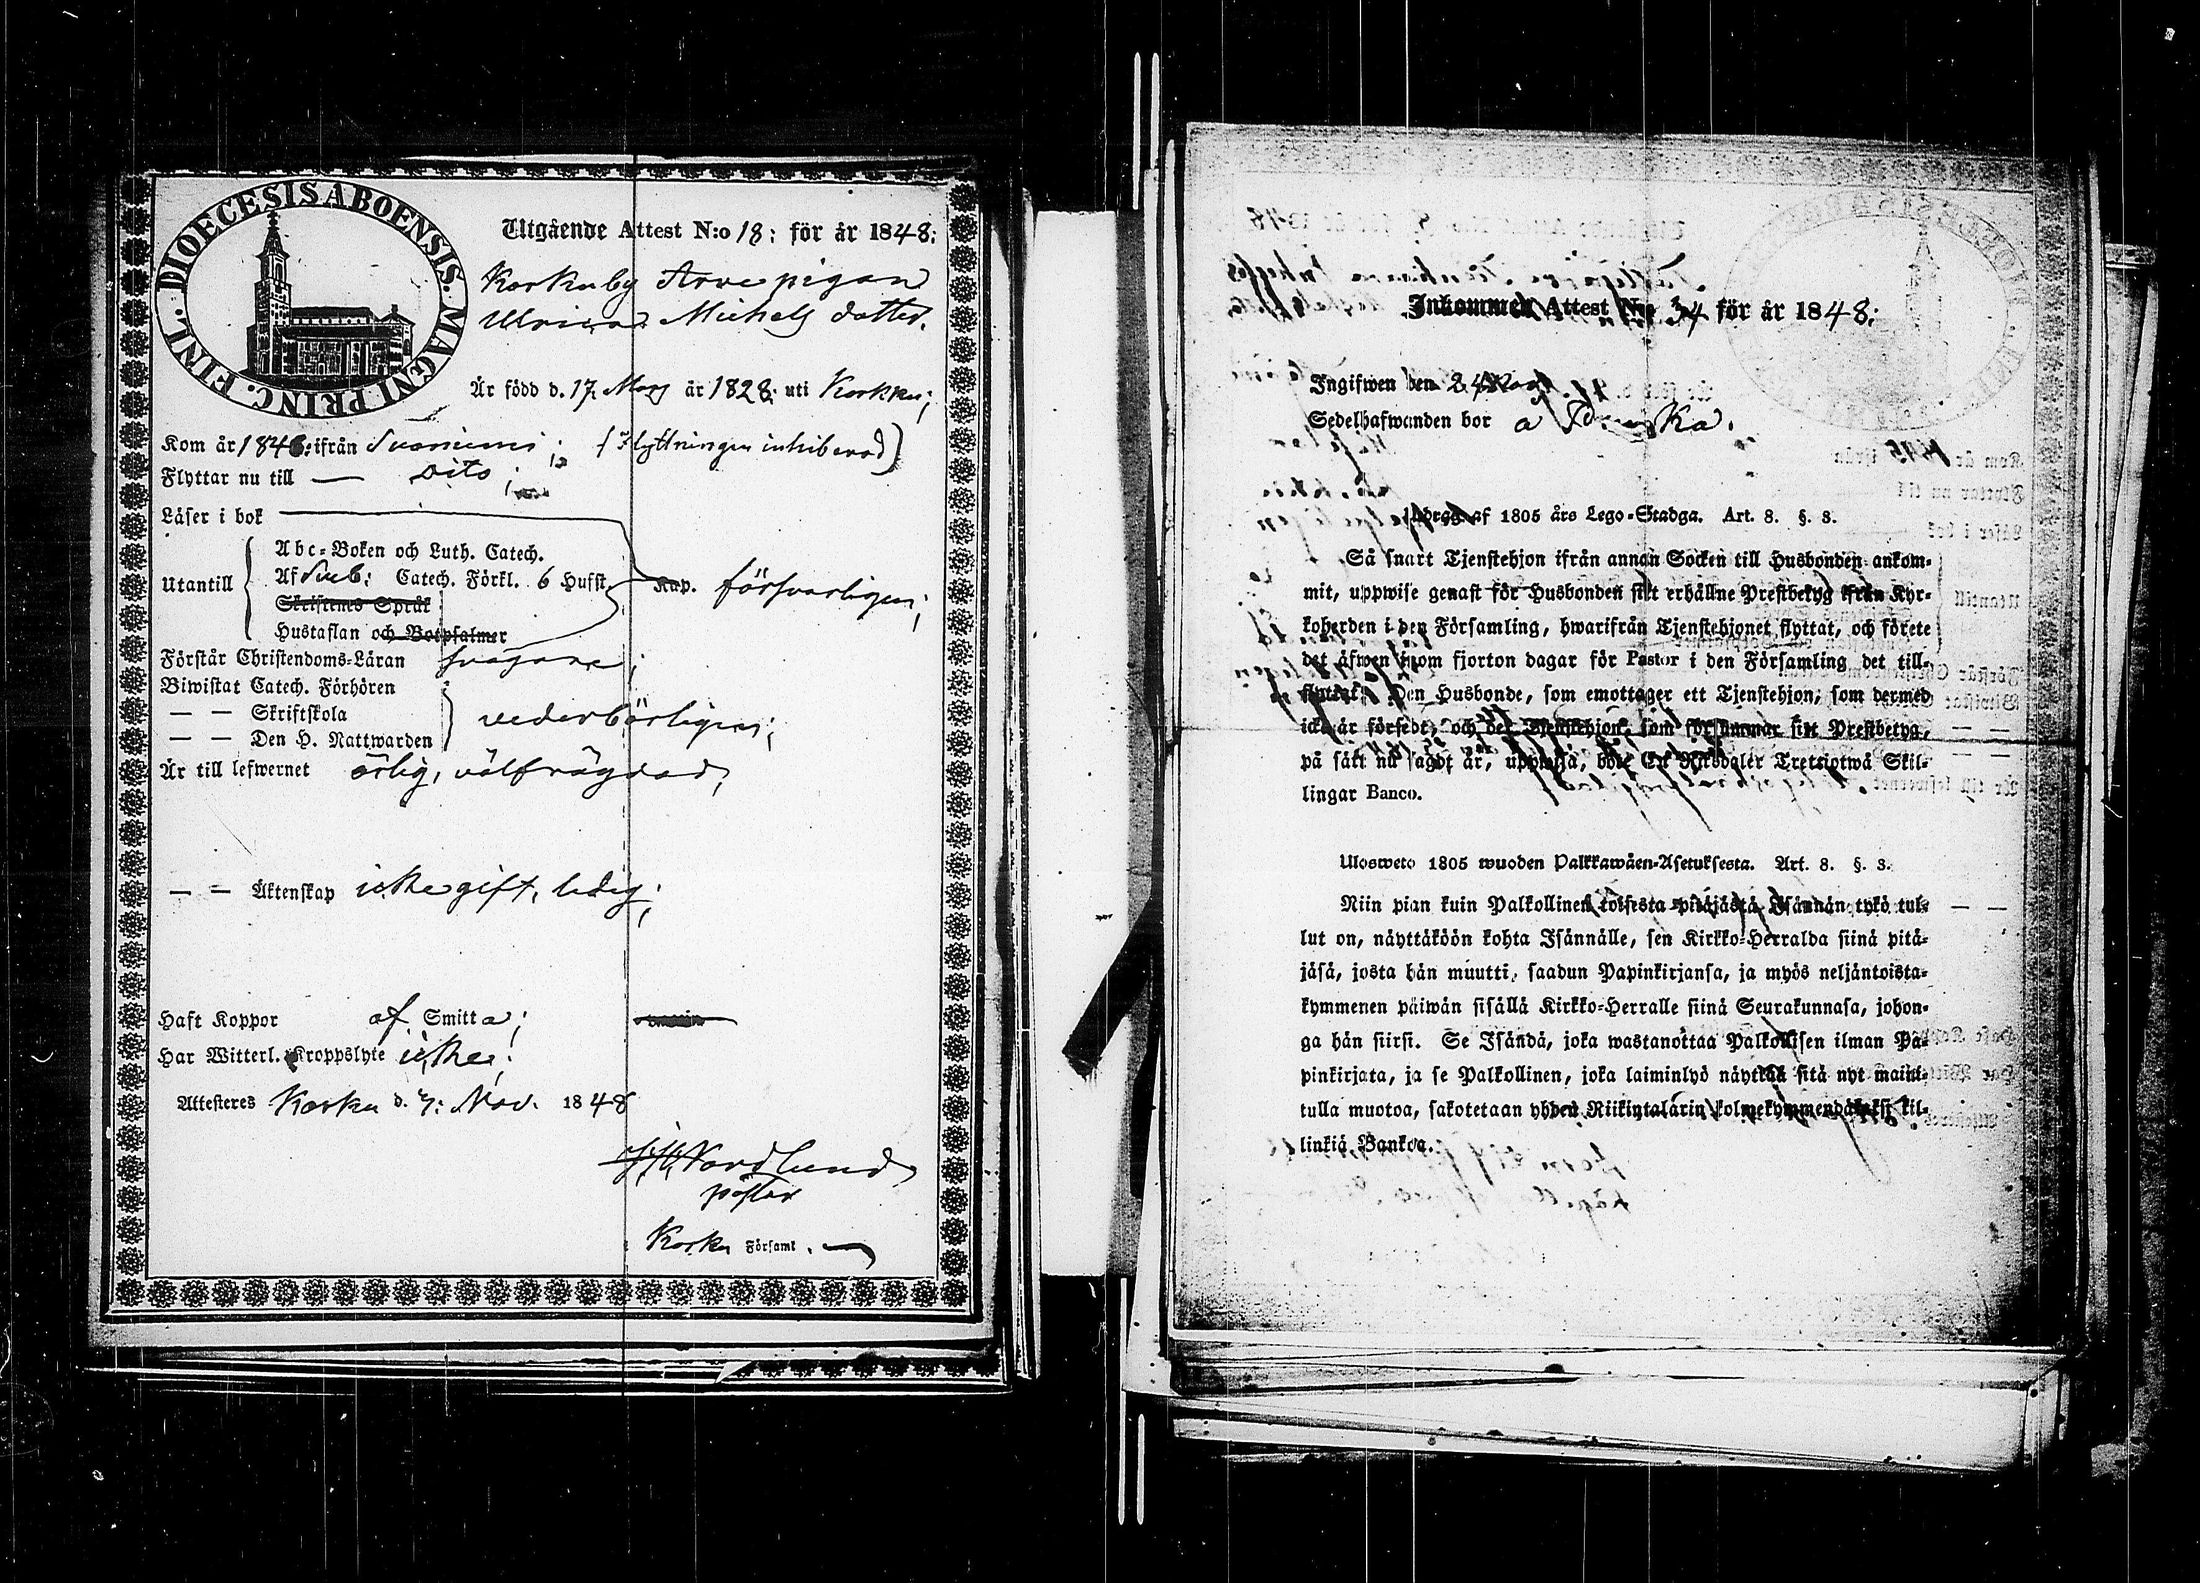 DIOECESIS ABOENSIS. MAGNI PRINC. FINL.
Utgående Attest N:o 18: för år 1848:
Karkuby Arve pigan
Ulrica Michels dotter.
Är född d. 17. Mars år 1828: uti Karkku;
Kom år 1846: ifrån Suoniemi; (Flyttningen inhiberad)
Flyttar nu till — Dito;
Läser i bok
Utantill
Abc-Boken och Luth. Catech.
Af Sveb: Catech. Förkl. 6 Hufst. Kap. försvarligen;
Skriftenes Språk
Hustaflan och Botpsalmer
Förstår Christendoms-Läran svagare;
Biwistat Catech. Förhören
— — Skriftskola vederbörligen;
— — Den H. Nattwarden
Är till lefwernet ärlig, välfrägdad;
— — Äktenskap icke gift, ledig;
Haft Koppor af Smitta;
Har Witterl. Kroppslyte icke;
Attesteres Karku d. 7: Nov. 1848
Nordlund
pastor
Karku Församl.
Inkommen Attest No 34 för år 1848;
Ingifwen den
Sedelhafwanden bor a
Utdrag af 1805 års Lego-Stadga. Art. 8. §. 3.
Så snart Tjenstehjon ifrån annan Socken till Husbonden ankom-
mit, uppwise genast för Husbonden sitt erhållne Prestbetyg ifrån Kyr-
koherden i den Församling, hwarifrån Tjenstehjonet flyttat, och förete
det äfwen inom fjorton dagar för Pastor i den Församling det till-
flyttat. Den Husbonde, som emottager ett Tjenstehjon, som dermed
icke är försedt, och det Tjenstehjon, som försummar sitt Prestbetyg,
på sätt nu sagdt är, uppwisa, böte Ett Riksdaler Trettiotwå Skil-
lingar Banco.
Ulosweto 1805 wuoden Palkkawäen-Asetuksesta. Art. 8. §. 3.
Niin pian kuin Palkollinen toisesta pitäjästä Isännän tykö tul-
lut on, näyttäköön kohta Isännälle, sen Kirkko-Herralda siinä pitä-
jäsä, josta hän muutti, saadun Papinkirjansa, ja myös neljäntoista-
kymmenen päiwän sisällä Kirkko-Herralle siinä Seurakunnasa, johon-
ga hän siirsi. Se Isändä, joka wastanottaa Palkollisen ilman Pa-
pinkirjata, ja se Palkollinen, joka laiminlyö näyttää sitä nyt maini-
tulla muotoa, sakotetaan yhden Riikintalarin kolmekymmendäkaksi kil-
linkiä Bankoa.